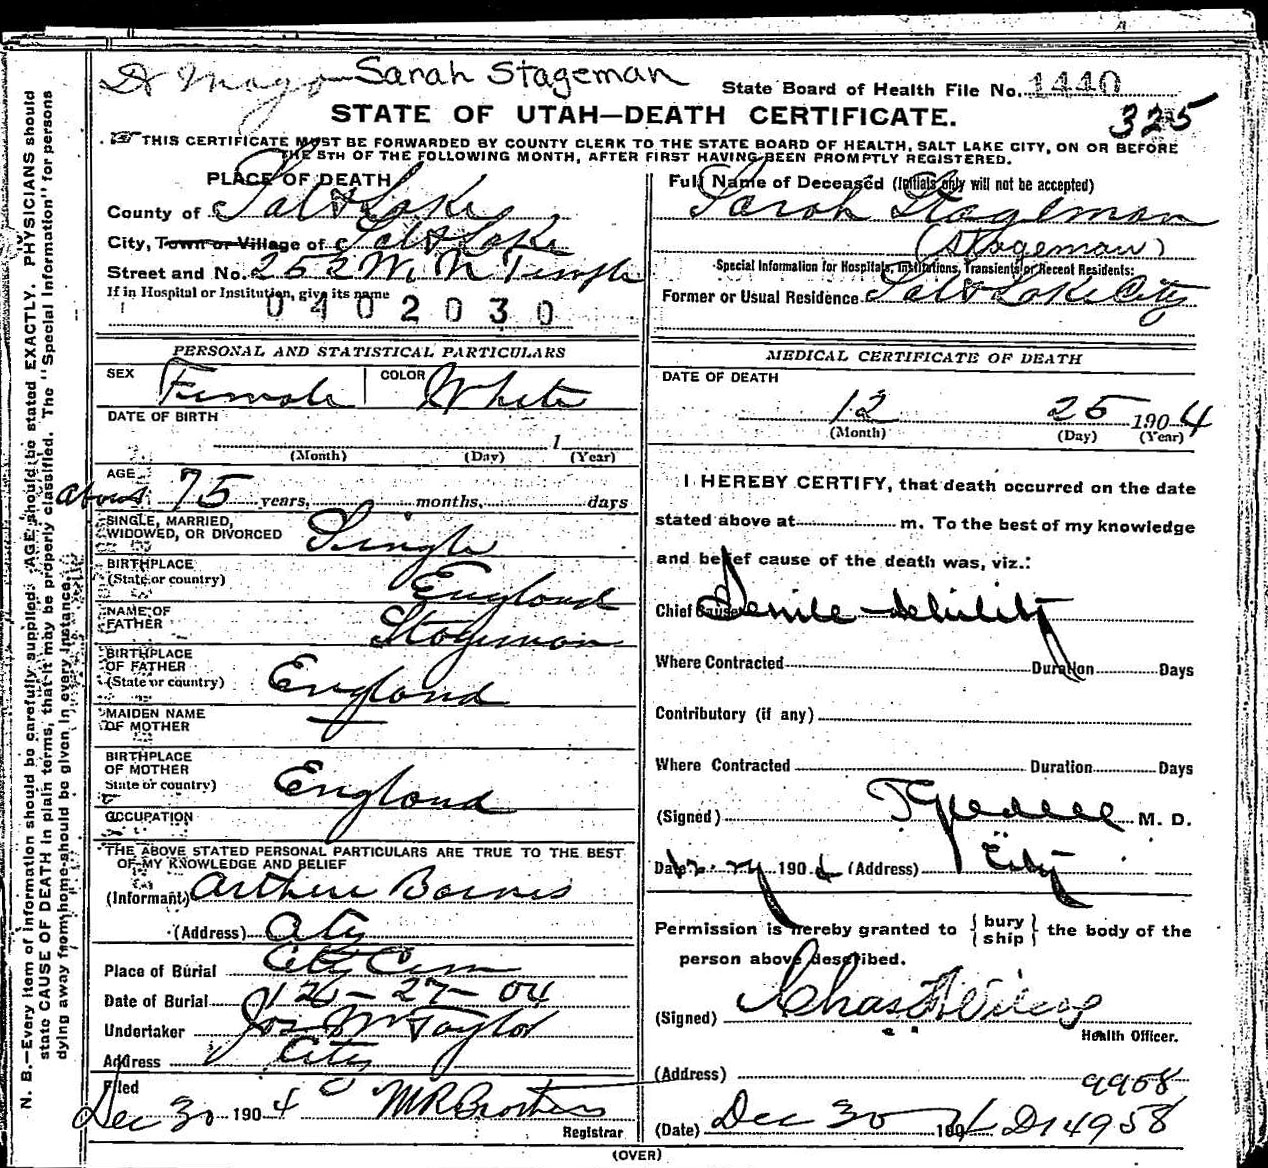 Sarah Stageman
State Board of Health File No. 1440
STATE OF UTAH—DEATH CERTIFICATE.
325
THIS CERTIFICATE MUST BE FORWARDED BY COUNTY CLERK TO THE STATE BOARD OF HEALTH, SALT LAKE CITY, ON OR BEFORE
THE 5TH OF THE FOLLOWING MONTH, AFTER FIRST HAVING BEEN PROMPTLY REGISTERED.
PLACE OF DEATH
County of Salt Lake
City, Town or Village of Salt Lake
Street and No. 252 W. N Temple
If in Hospital or Institution, give its name
0402030
Full Name of Deceased (Initials only will not be accepted)
Sarah Stageman
(Stageman)
Special Information for Hospitals, Institutions, Transients or Recent Residents:
Former or Usual Residence Salt Lake City
PERSONAL AND STATISTICAL PARTICULARS
SEX Female COLOR White
DATE OF BIRTH
1
(Month) (Day) (Year)
AGE
about 75 years, months, days
SINGLE, MARRIED,
WIDOWED, OR DIVORCED Single
BIRTHPLACE
(State or country) England
NAME OF
FATHER Stageman
BIRTHPLACE
OF FATHER
(State or country) England
MAIDEN NAME
OF MOTHER —
BIRTHPLACE
OF MOTHER
State or country) England
OCCUPATION
THE ABOVE STATED PERSONAL PARTICULARS ARE TRUE TO THE BEST
OF MY KNOWLEDGE AND BELIEF
(Informant) Arthur Barnes
(Address) City
Place of Burial City Cem
Date of Burial 12-27-04
Undertaker Jos Wm Taylor
Address City
Filed
Dec 30 1904
Registrar
MEDICAL CERTIFICATE OF DEATH
DATE OF DEATH
12 25 1904
(Month) (Day) (Year)
I HEREBY CERTIFY, that death occurred on the date
stated above at m. To the best of my knowledge
and belief cause of the death was, viz.:
Chief Cause Senile debility
Where Contracted Duration Days
Contributory (if any)
Where Contracted Duration Days
(Signed) M. D.
Date 1904 (Address) City
Permission is hereby granted to { bury ship } the body of the
person above described.
(Signed) Chas
Health Officer.
(Address) 9958
(Date) Dec 30 1904 D14958
(OVER)
N. B.—Every item of information should be carefully supplied. AGE should be stated EXACTLY. PHYSICIANS should
state CAUSE OF DEATH in plain terms, that it may be properly classified. The "Special Information" for persons
dying away from home should be given in every instance.